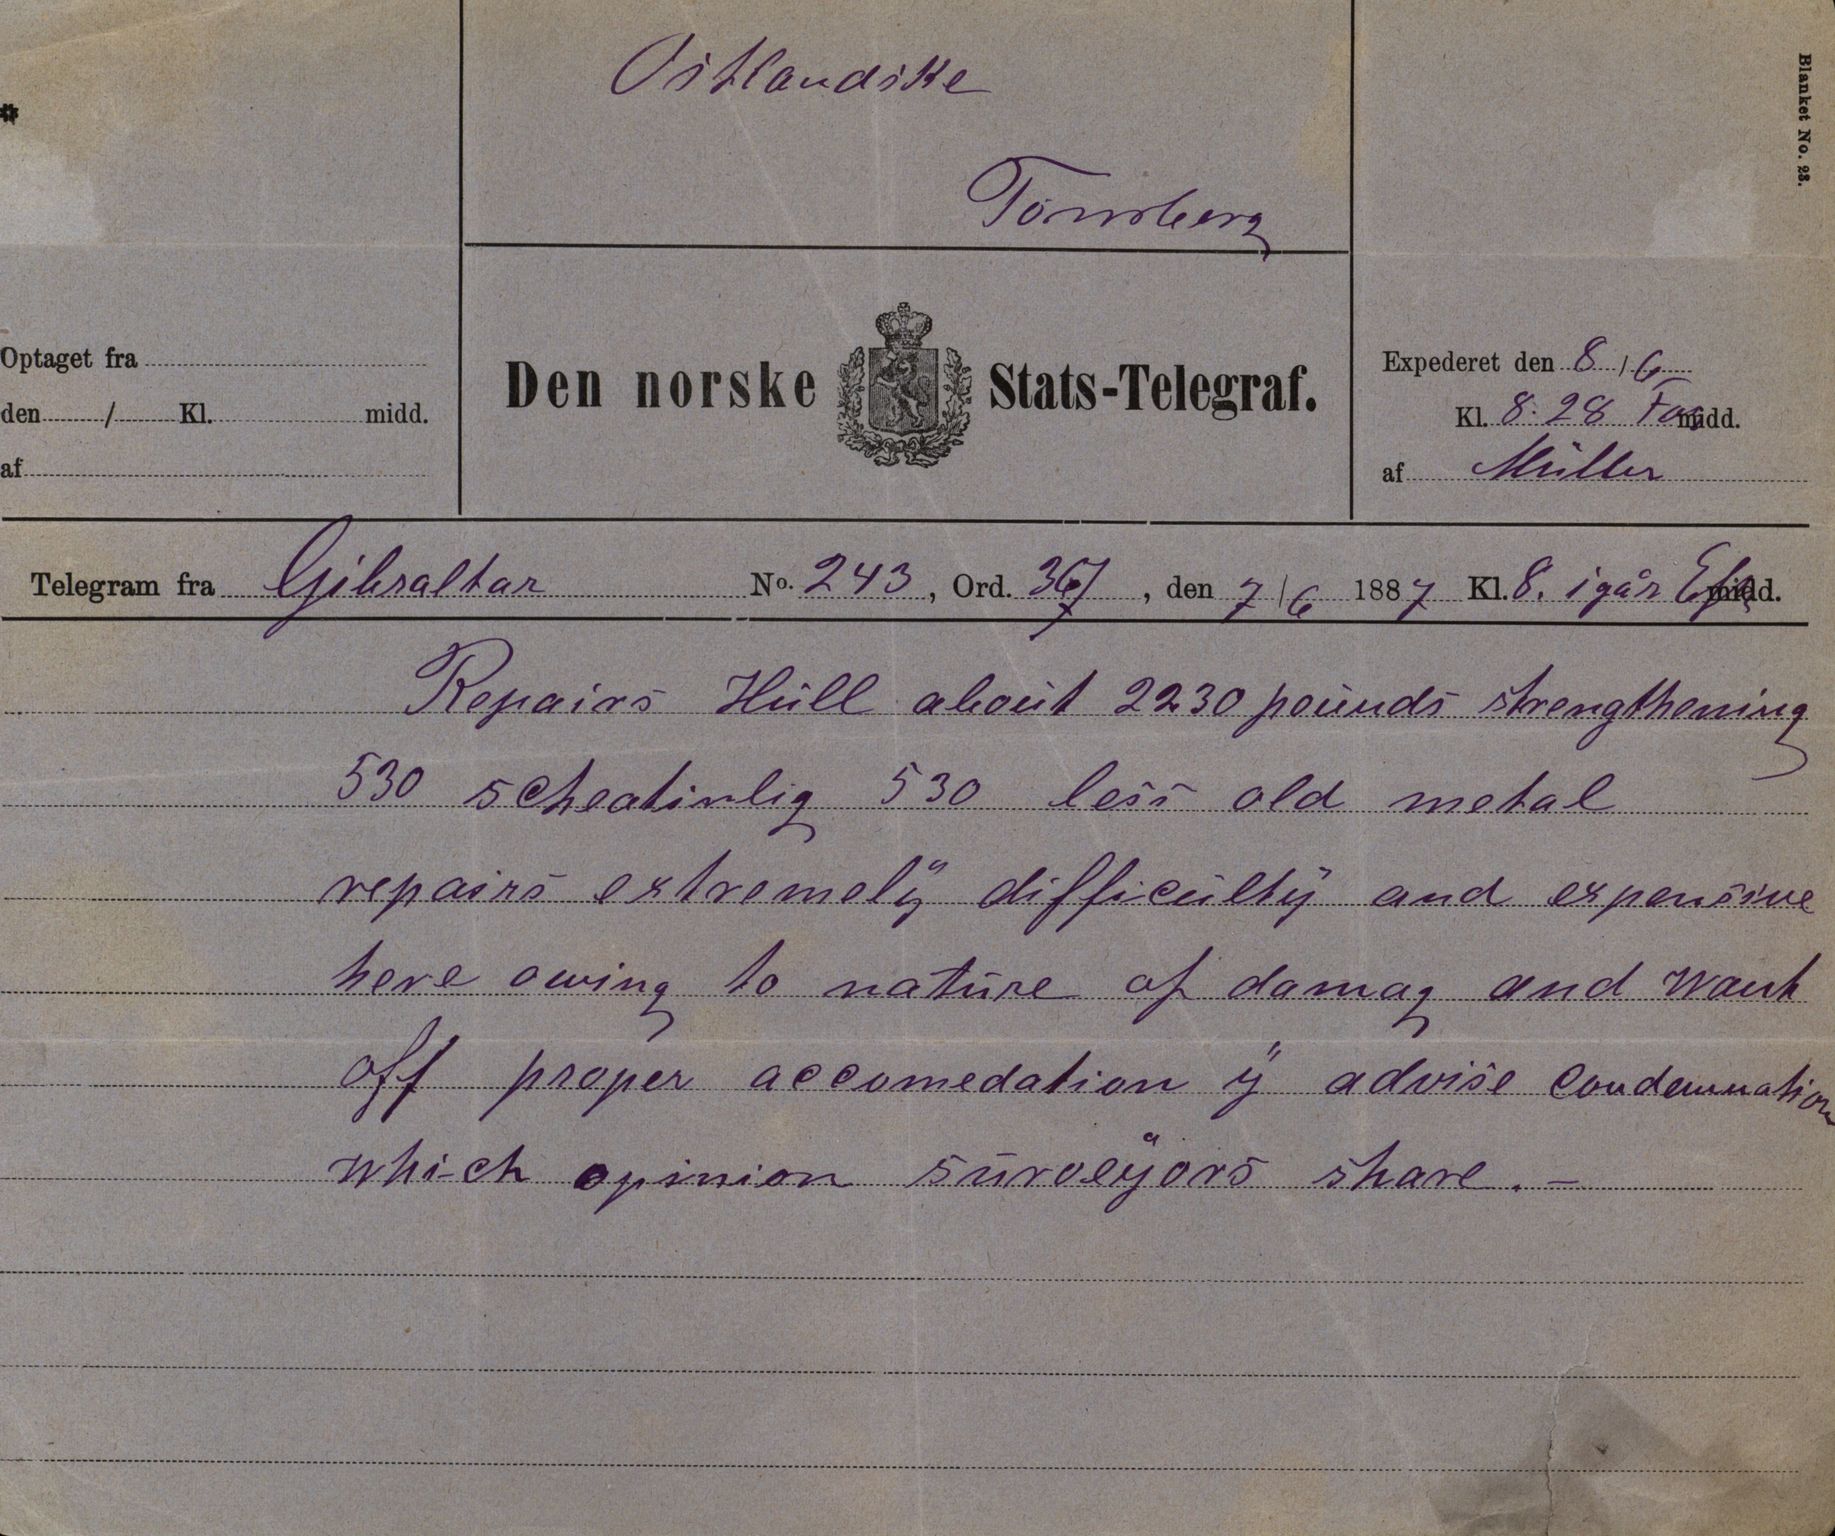 Ostlandske
Tönsberg
Blanket No. 23.
Optaget fra
den / Kl. midd.
af
Den norske Stats-Telegraf.
Expederet den 8/6
Kl. 8.28 For midd.
af Müller
Telegram fra Gibraltar No. 243, Ord. 367, den 7/6 1887 Kl. 8. igår Efr midd.
Repairs Hull about 2230 pounds strengthening
530 scheatinlig 530 less old metal
repairs extremely difficulty and expensive
here owing to nature of damag and want
off proper accomedation ÿ advise condemnation
which opinion surveÿors share. –